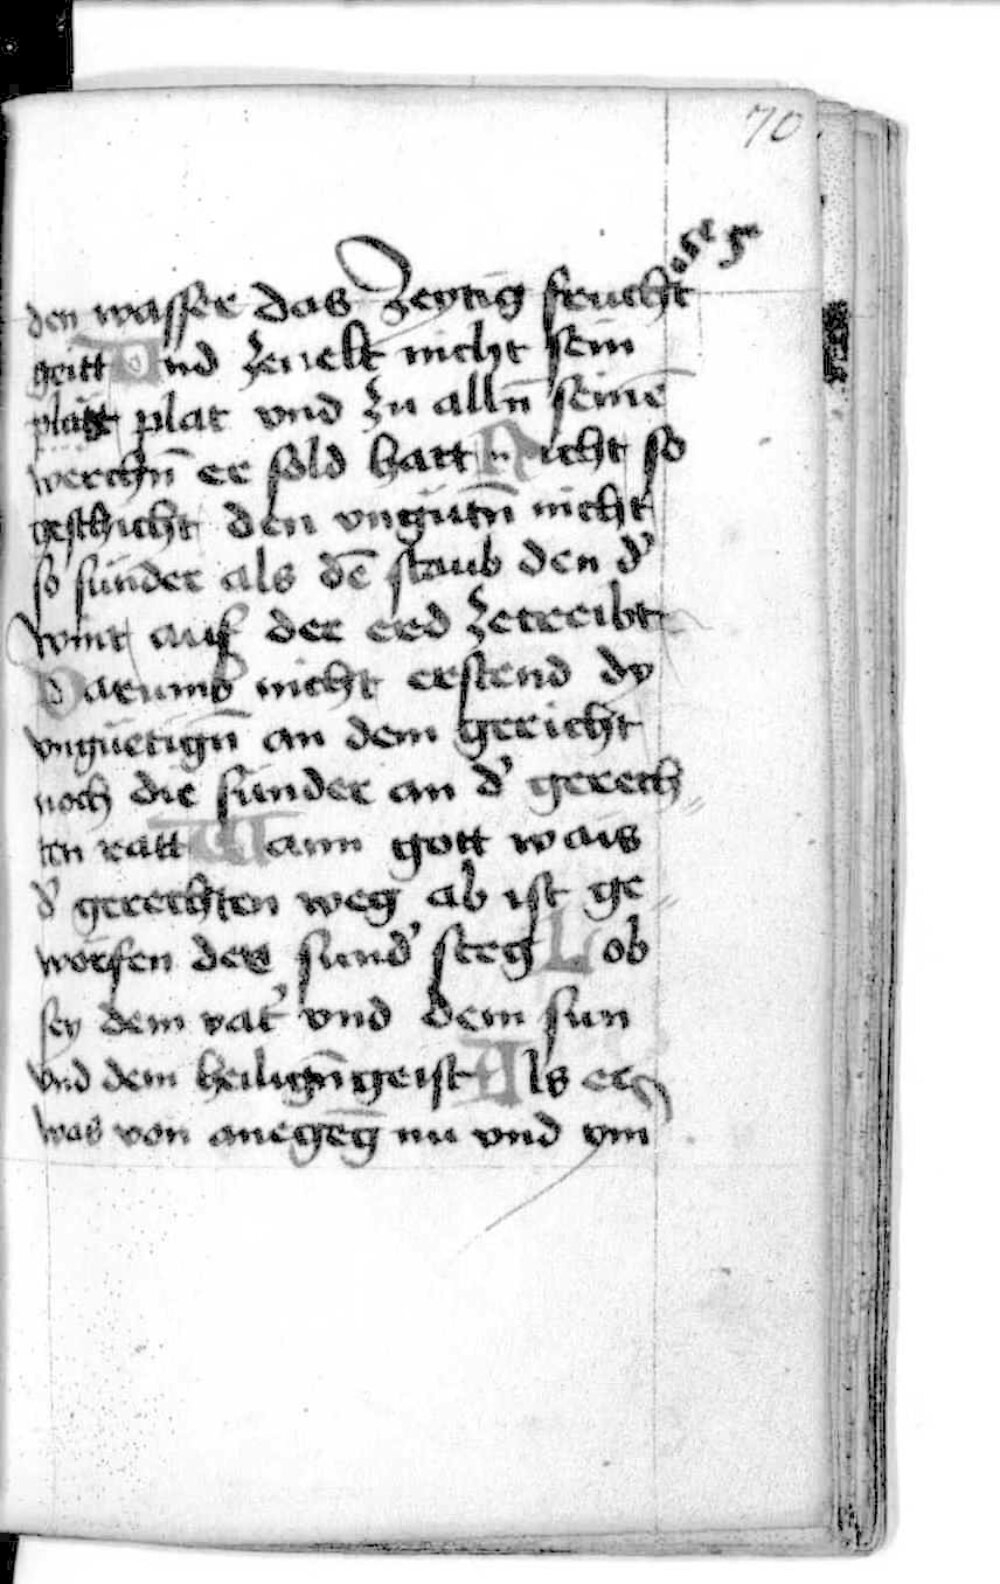 70
den wasser das zeytig frucht
geitt Vnd zeuelt nicht sein
plat vnd zu alln̄ seinē
werchn̄ er sold hatt Nicht so
geschicht den vngūtn̄ nicht
so sunder als dē staub den d'
wint auf der erd zetreibt
Darumb nicht erstend dy
vngūetign̄ an dem gericht
noch die sunder an d' gerech
ten ratt Wann gott wais
d' gerechten weg ab ist ge
worfen der sund' steg Lob
sey dem vat' vnd dem sun
vnd dem heilign̄ geist Als er
was von anegēg nu vnd ym